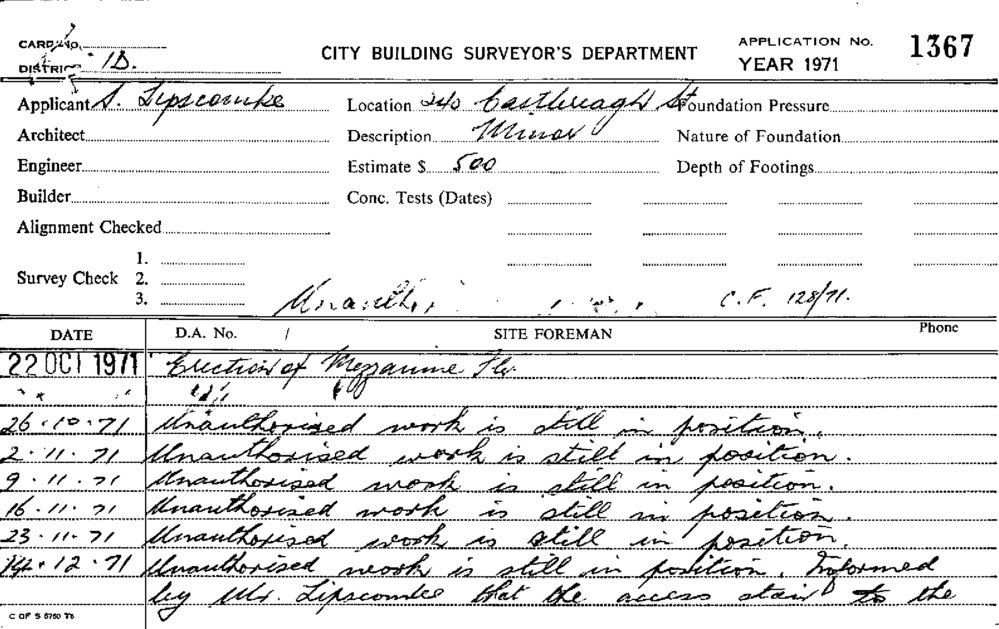 CARD No.
DISTRICT 1B.
CITY BUILDING SURVEYOR'S DEPARTMENT
APPLICATION No. 1367
YEAR 1971
Applicant S. Lipscombe Location 240 Castlereagh St Foundation Pressure
Architect Description Minor Nature of Foundation
Engineer Estimate $ 500 Depth of Footings
Builder Conc. Tests (Dates)
Alignment Checked
1.
Survey Check 2.
3.
C.F. 128/71.
DATE D.A. No. / SITE FOREMAN Phone
22 OCT 1971 Erection of Mezzanine Flr.
26.10.71 Unauthorised work is still in position.
2.11.71 Unauthorised work is still in position.
9.11.71 Unauthorised work is still in position.
16.11.71 Unauthorised work is still in position.
23.11.71 Unauthorised work is still in position.
14.12.71 Unauthorised work is still in position. Informed
by Mr. Lipscombe that the access stair to the
C OF S 6760 T6